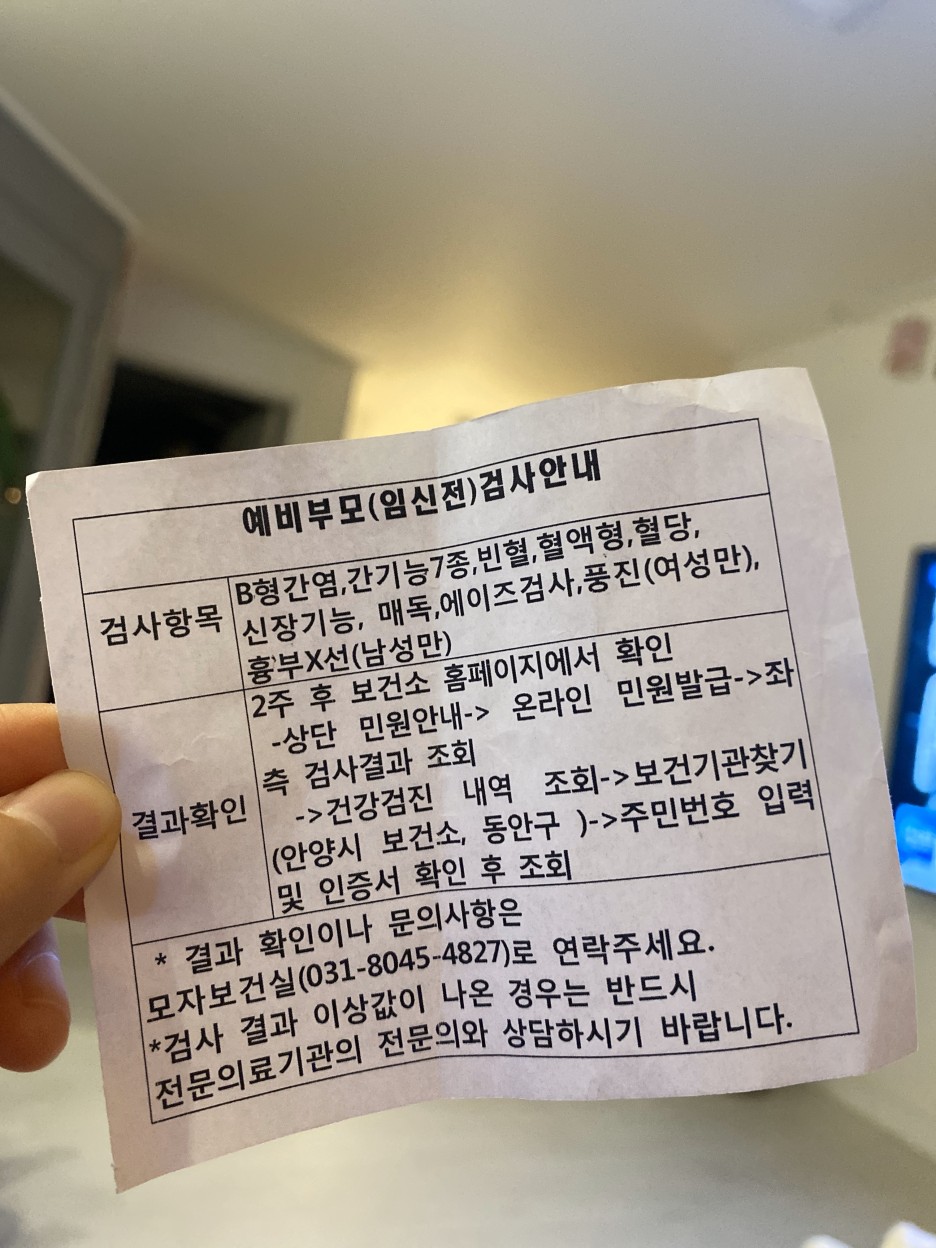 예비부모(임신전)검사안내
검사항목
B형간염,간기능7종,빈혈,혈액형,혈당,
신장기능, 매독,에이즈검사,풍진(여성만),
흉부X선(남성만)
결과확인
2주 후 보건소 홈페이지에서 확인
-상단 민원안내-> 온라인 민원발급->좌
측 검사결과 조회
->건강검진 내역 조회->보건기관찾기
(안양시 보건소, 동안구 )->주민번호 입력
및 인증서 확인 후 조회
* 결과 확인이나 문의사항은
모자보건실(031-8045-4827)로 연락주세요.
*검사 결과 이상값이 나온 경우는 반드시
전문의료기관의 전문의와 상담하시기 바랍니다.